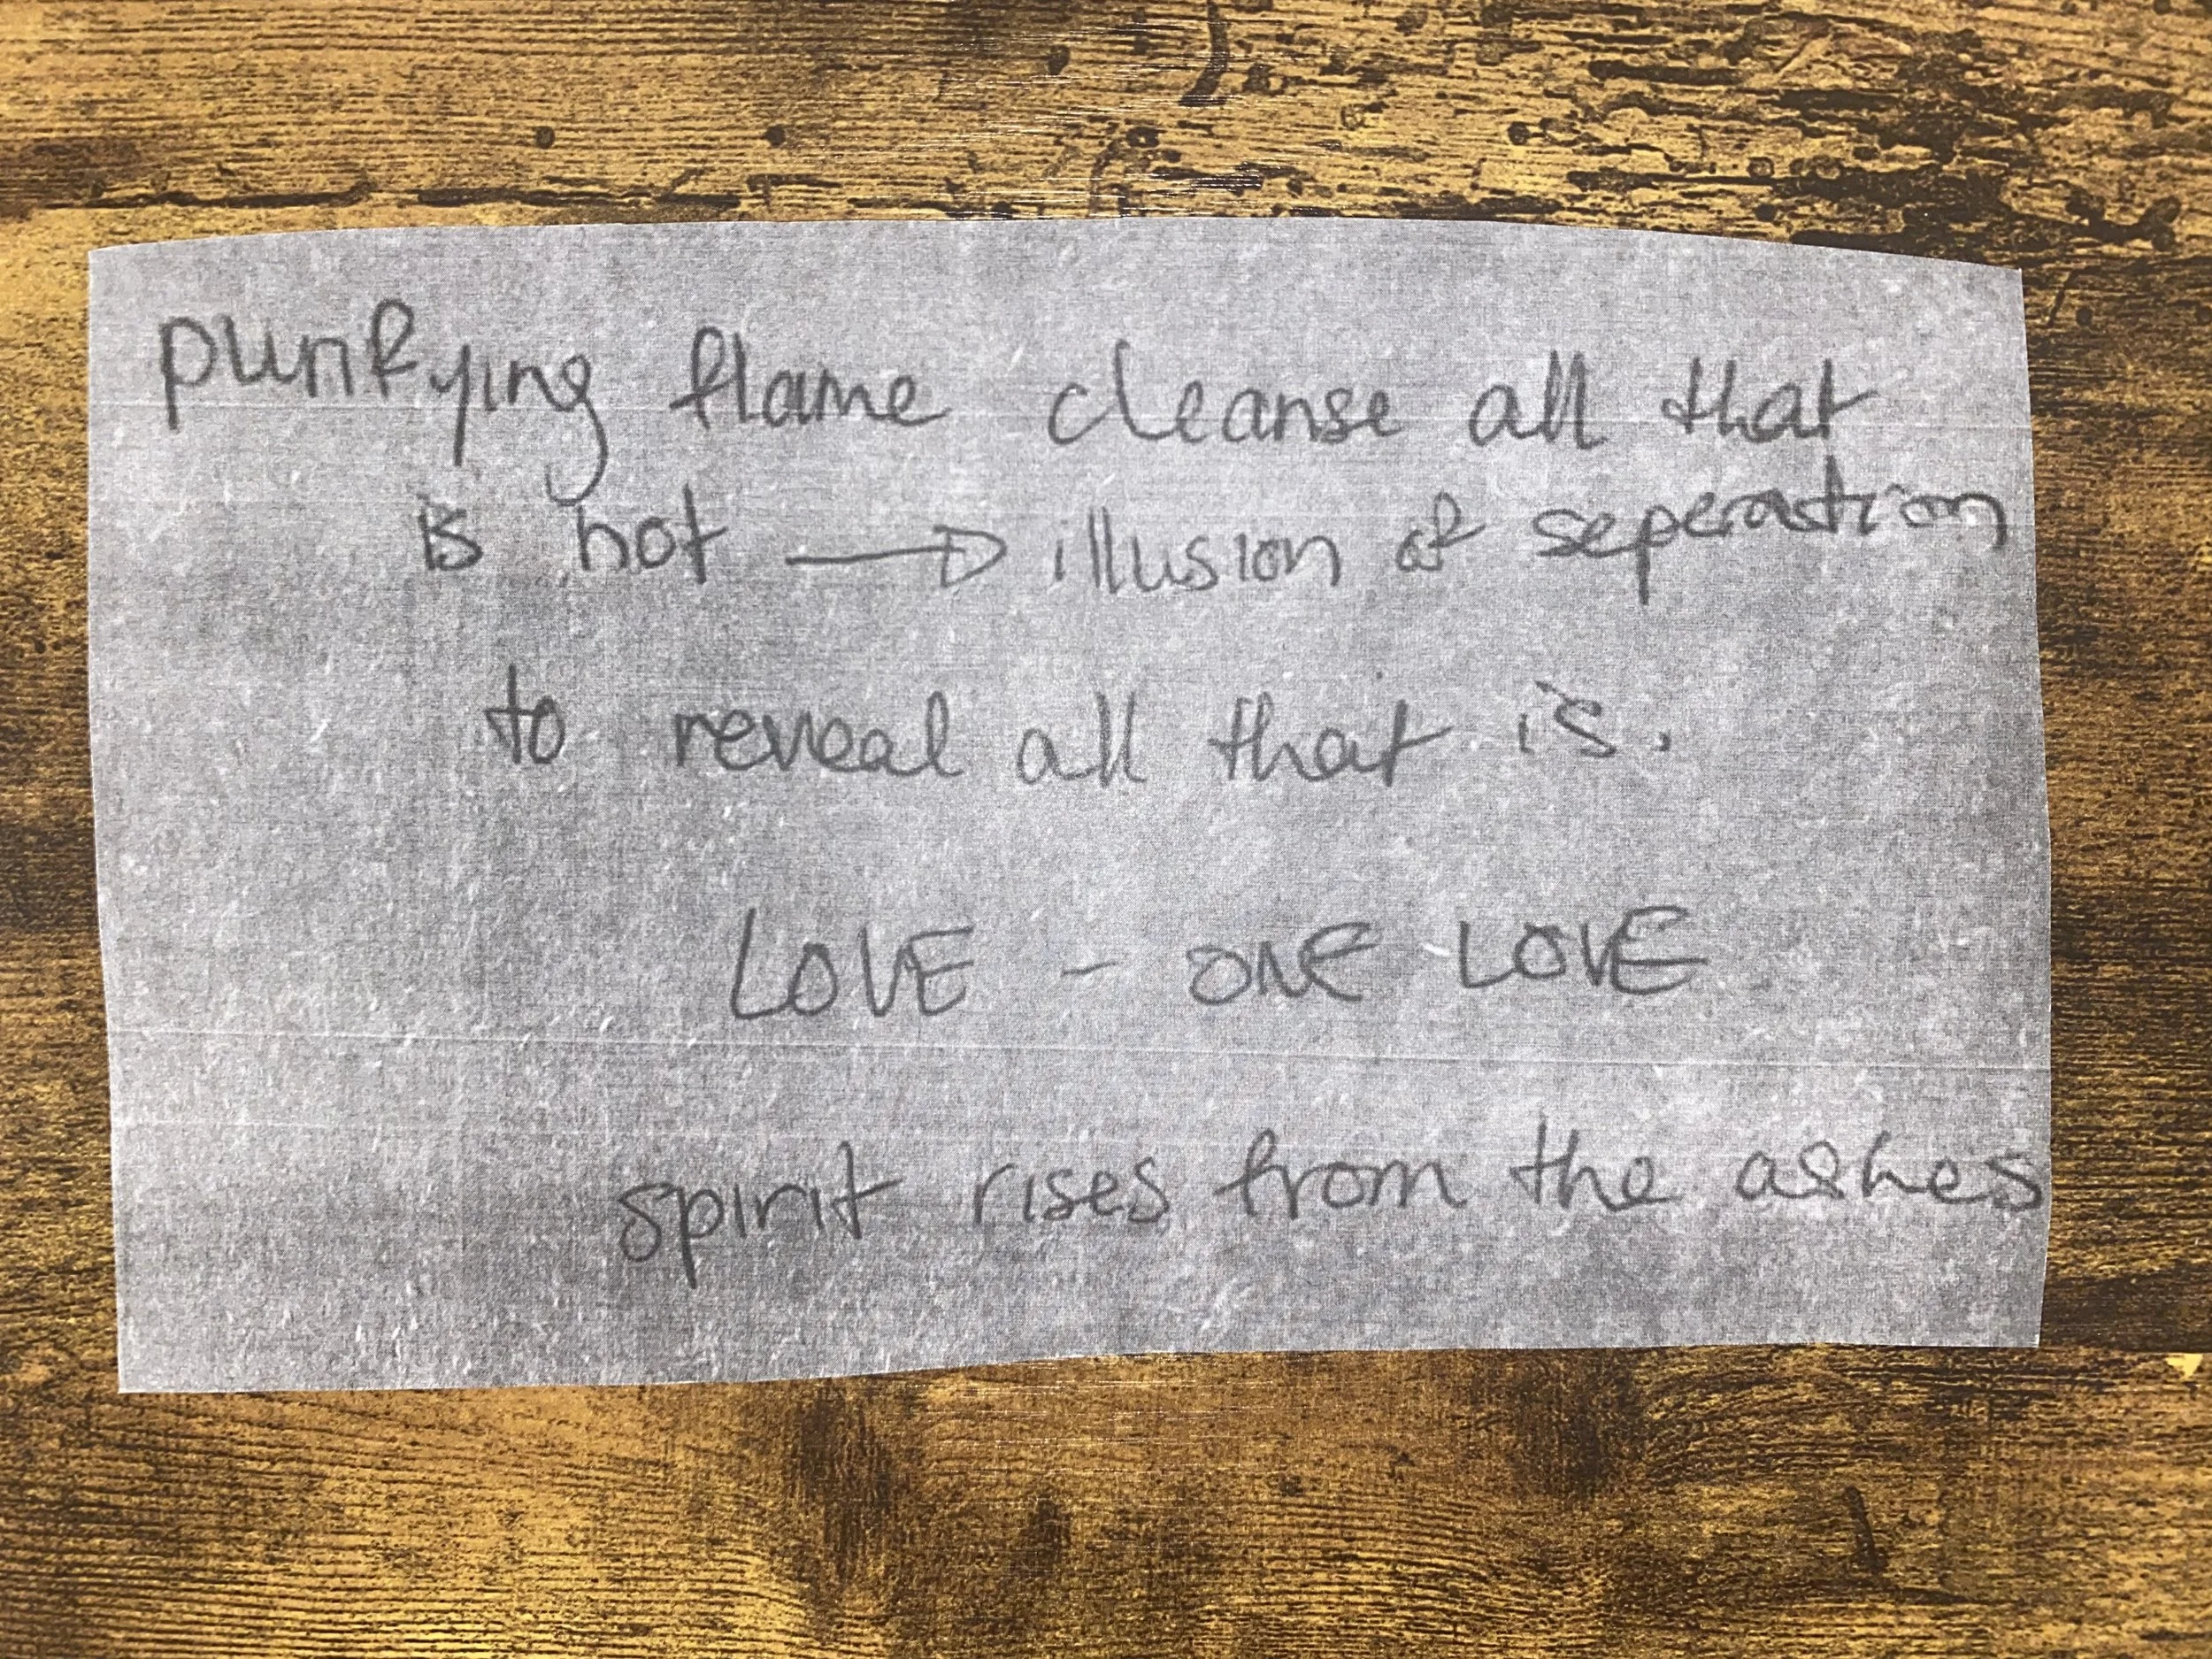 purifying flame cleanse all that
is not → illusion of seperation
to reveal all that is.
LOVE - ONE LOVE
spirit rises from the ashes